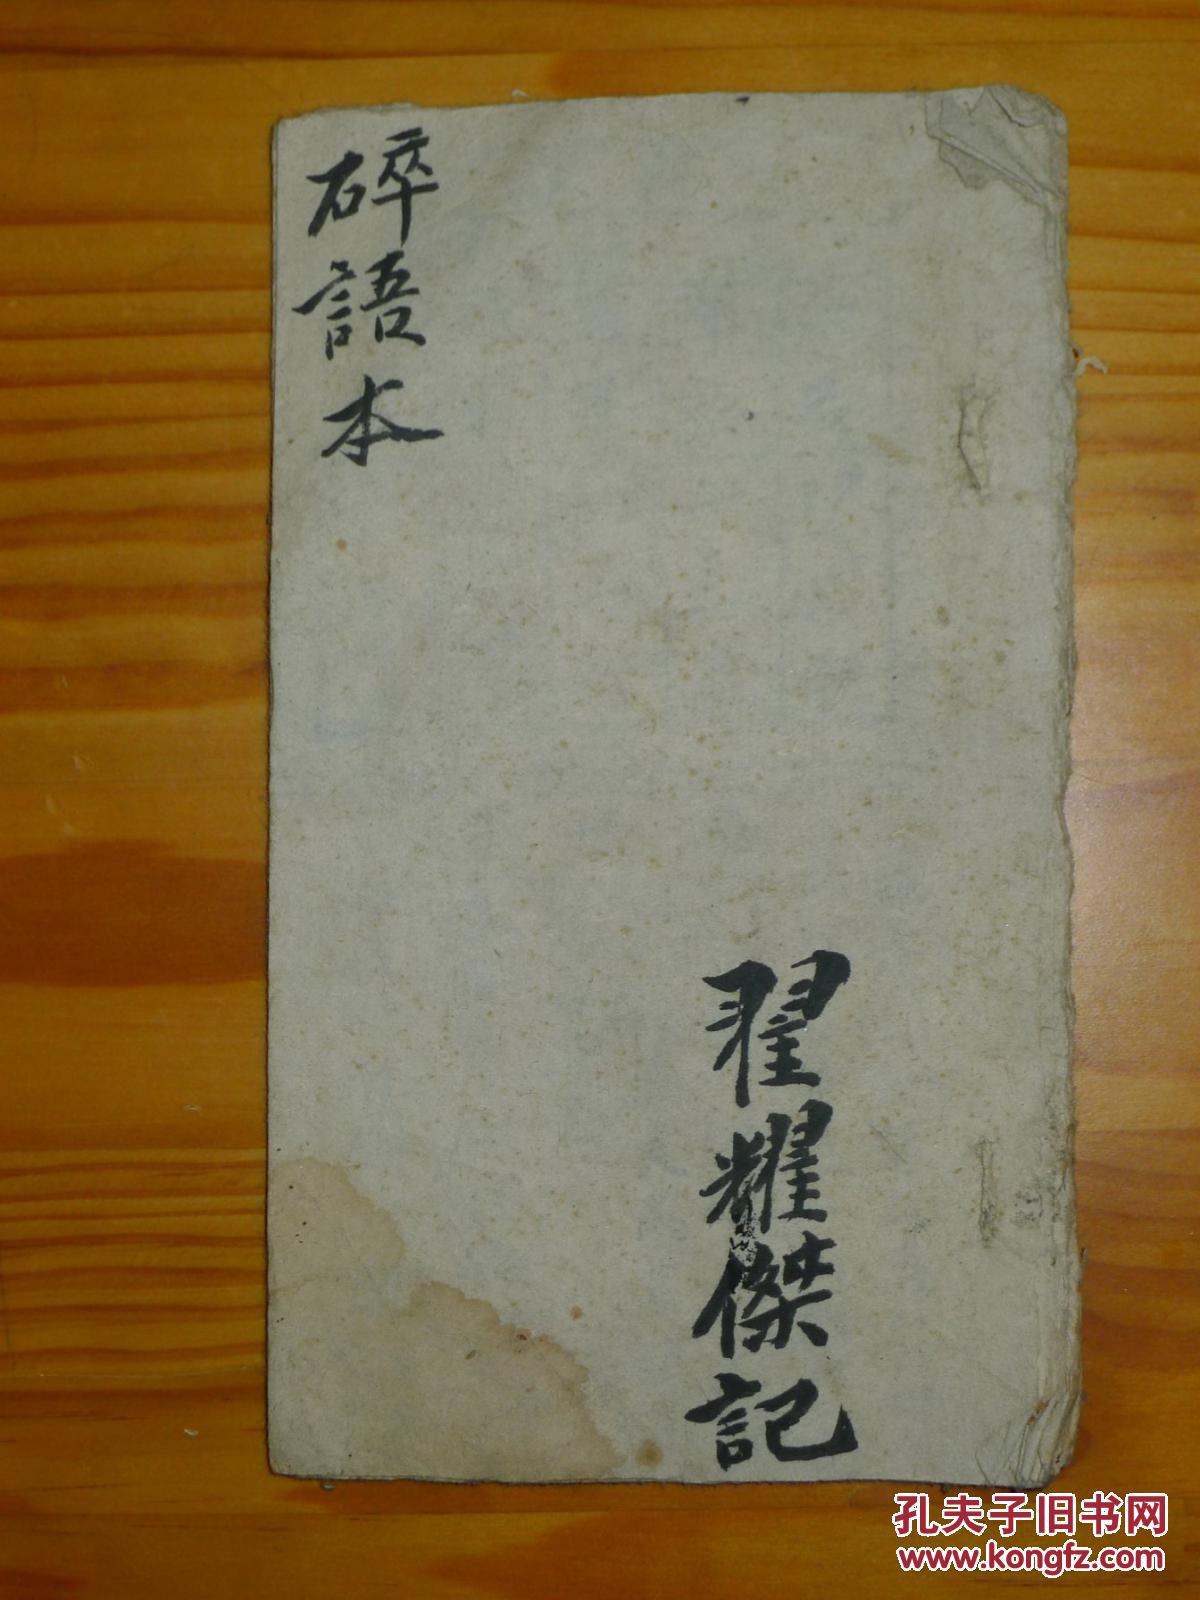 碎語本
翟耀傑記
孔夫子旧书网
www.kongfz.com